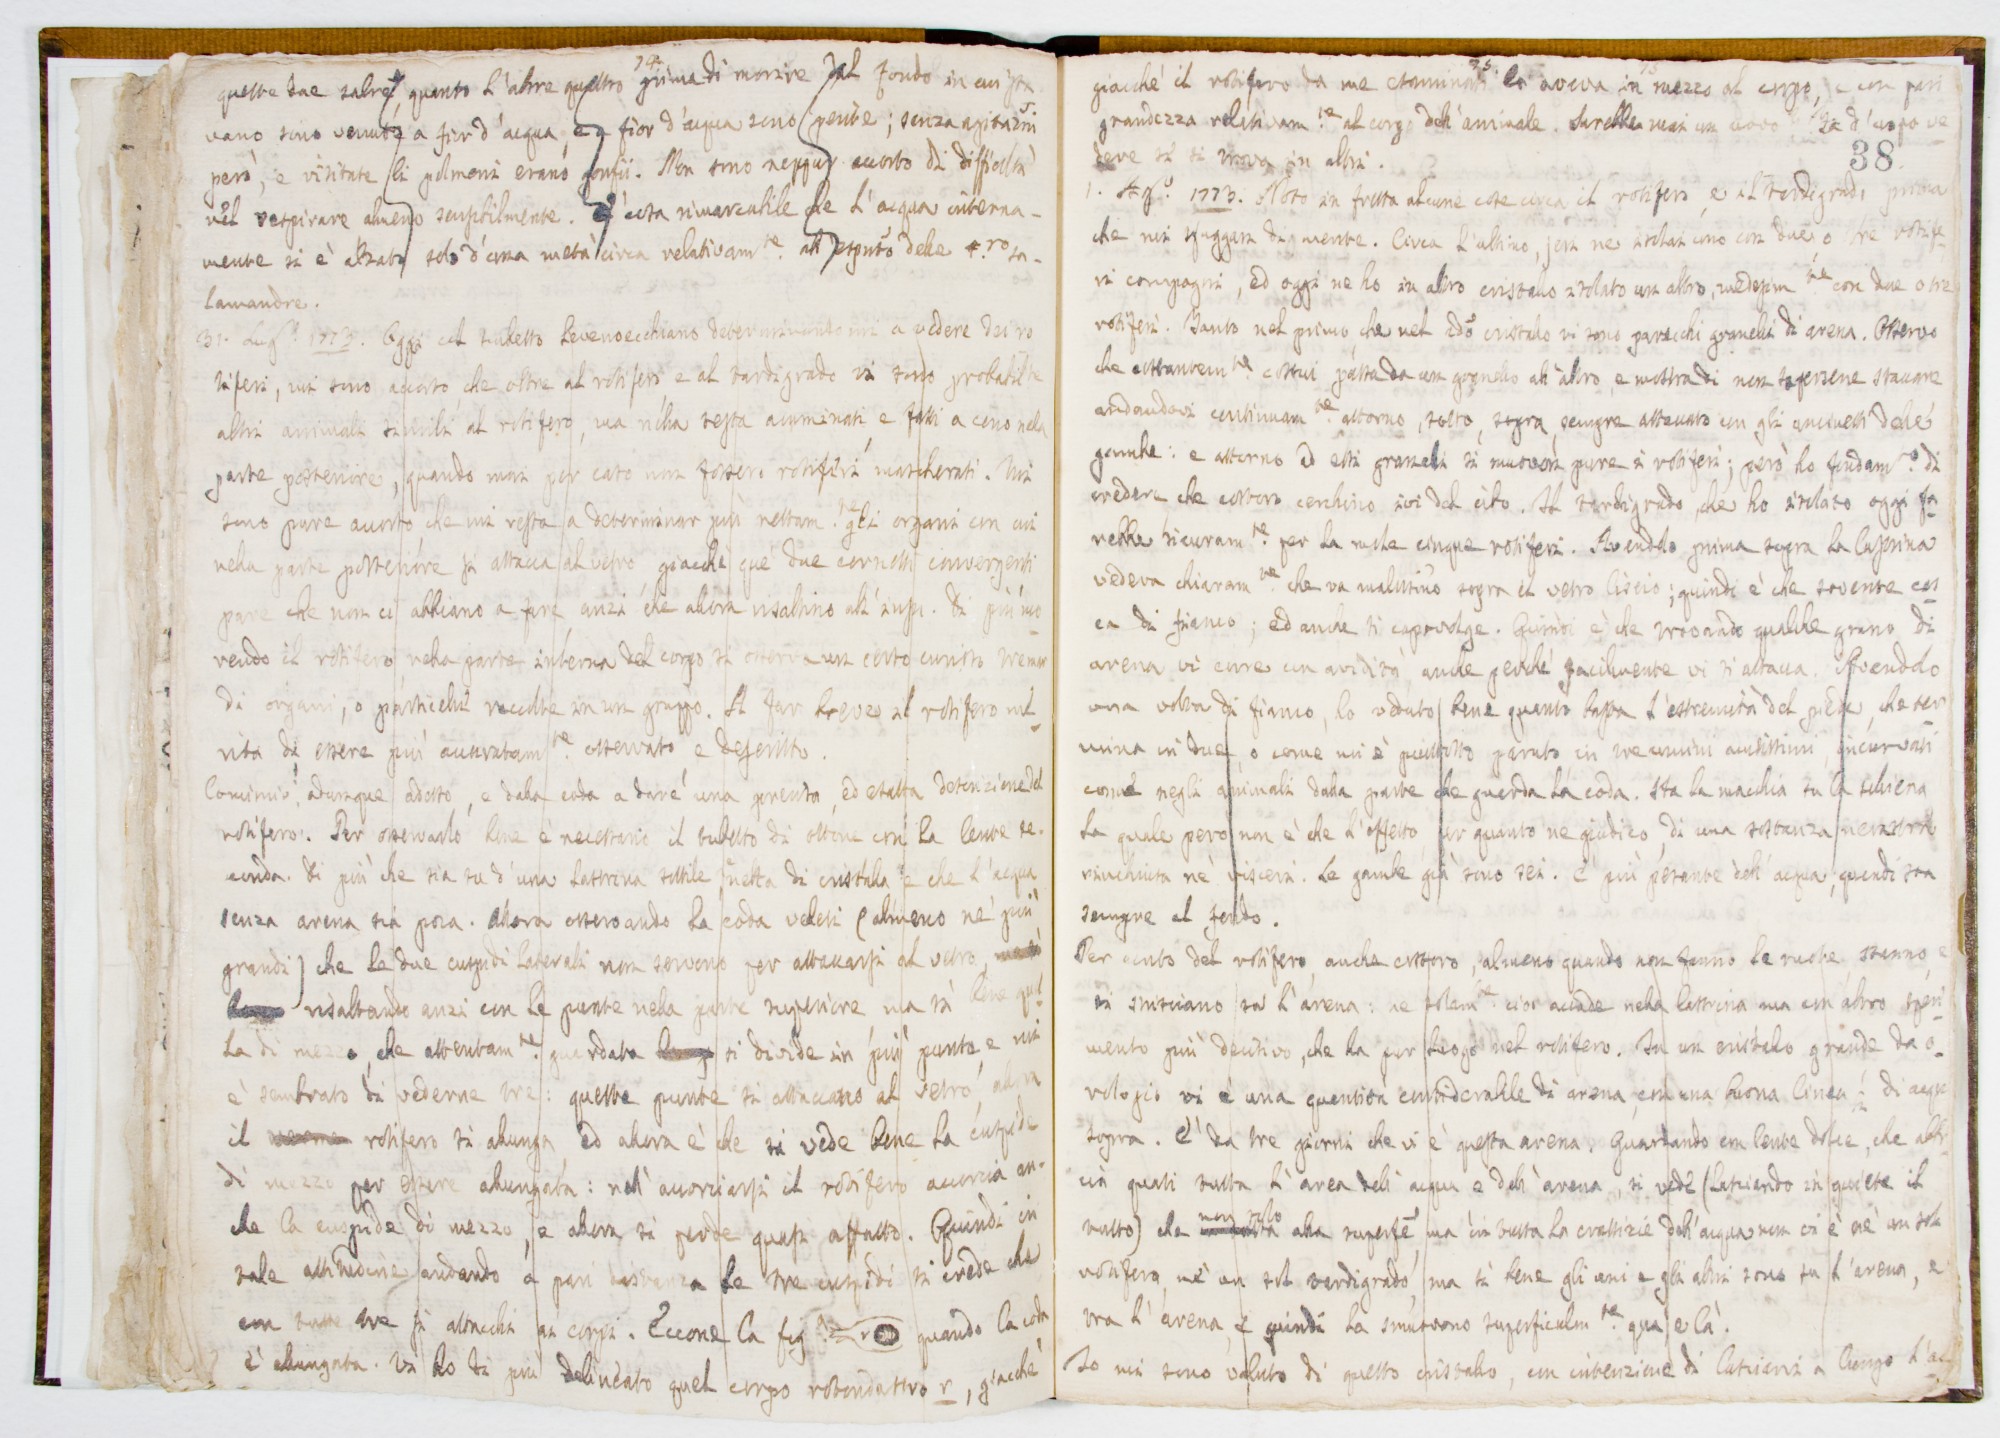 74.
queste due salre, quanto l'altre quattro prima di morire dal fondo in cui sta-
vano sono venute a fior d'acqua, e a fior d'acqua sono perite; senza agitazni
però, e visitate li polmoni erano gonfii. Non sono neppur accorto di difficoltà
nel respirare almeno sensibilmente. E' cosa rimarcabile che l'acqua interna-
mente si è alzata solo d'una metà circa relativamte. all' esptõ delle 4.ro sa-
lamandre.
31. Lugº. 1773. Oggi col tubetto Levenoecchiano determinandomi a vedere dei ro
tiferi, mi sono accorto, che oltre al rotifero e al tardigrado vi sono probabilte
altri animali simili al rotifero, ma nella testa acuminati, e fatti a cono nella
parte posteriore, quando mai per caso non fossero rotiferi mascherati. Mi
sono pure accorto che mi resta a determinar più nettam.te gli organi con cui
nella parte posteriore si attacca al vetro, giacchè que' due cornetti convergenti
pare che non ci abbiano a fare, anzi che allora risaltino all'insu. Di più mo
vendo il rotifero nella parte interna del corpo si osserva un certo curioso tremor
di organi, o particelle raccolte in un gruppo. A far breve il rotifero me
rita di essere più accuratamte. osservato, e descritto.
Comincio adunque adesso, e dalla coda a dare una precisa, ed esatta descrizione del
rotifero. Per osservarlo bene è necessario il tubetto di ottone con la lente se-
conda. Di più che sia su d'una lastrina sottile netta di cristallo e che l'acqua
senza arena sia poca. Allora osservando la coda vedesi (almeno ne' più
grandi) che le due cuspidi laterali non servono per attaccarsi al vetro,
risaltando anzi con le punte nella parte superiore ma sì bene quel
la di mezzo, che attentamte. guardata si divide in più punte, e mi
è sembrato di vederne tre: queste punte si attaccano al vetro, allora
il rotifero si allunga, ed allora è che si vede bene la cuspide
di mezzo per essere allungata: nell' accorciarsi il rotifero accorcia an-
che la cuspide di mezzo, e allora si perde quasi affatto. Quindi in
tale attitudine andando a pari distanza le tre cuspidi si crede che
con tutte tre si attacchi ai corpi. Eccone la figa. r quando la coda
è allungata. Vi ho di più delineato quel corpo rotondastro r, giacchè
75.
38.
giacchè il rotifero da me esaminato lo aveva in mezzo al corpo, e con pari
grandezza relativam.te al corpo dell'animale. Sarebbe mai un uovo? D'uopo ve
dere se si trova in altri.
1. Agº. 1773. Noto in fretta alcune cose circa il rotifero, e il tardigrado prima
che mi sfuggan di mente. Circa l'ultimo, jeri ne isolai uno con due o tre rotife-
ri compagni, ed oggi ne ho in altro cristallo isolato un altro, medesimte. con due o tre
rotiferi. Tanto nel primo, che nel 2dõ cristallo vi sono parecchi granelli di arena. Osservo
che costantemte. costui passa da un granello all'altro, e mostra di non sapersene staccare
andandovi continuamte. attorno, sotto, sopra, sempre attaccato con gli uncinetti delle
gambe: e attorno ad essi granelli si muovon pure i rotiferi; però ho fondamto. di
credere che costoro cerchino ivi del cibo. Il tardigrado, che ho isolato oggi fa
rebbe sicuramte. per la mole cinque rotiferi. Avendolo prima sopra la lastrina
vedeva chiaramte. che va malissimo sopra il vetro liscio; quindi è che sovente cas
ca di fianco; ed anche si capovolge. Quindi è che trovando qualche grano di
arena vi corre con avidità, anche perchè facilmente vi si attacca. Avendolo
una volta di fianco, ho veduto bene quanto basta l'estremità del piede, che ter
mina in due, o come mi è piuttosto paruto in tre uncini acutissimi, incurvati
come negli animali dalla parte che guarda la coda. Ha la macchia su la schiena
la quale però non è che l'effetto, per quanto ne giudico, di una sostanza nerastra
rinchiusa ne' visceri. Le gambe già sono sei. E' più pesante dell' acqua, quindi sta
sempre al fondo.
Per conto del rotifero, anche costoro, almeno quando non fanno le ruote, stanno, e
si strisciano su l'arena: ne solamte. ciò accade nella lastrina ma con altro speri
mento più decisivo, che ha pur luogo nel rotifero. In un cristallo grande da o-
rologio vi è una quantità considerabile di arena, con una buona linea ½ di acqua
sopra. E' da tre giorni che vi è questa arena. Guardando con lente dolce, che abbrac
cia quasi tutta l'area dell' acqua e dell' arena, si vede (lasciando in quiete il
tutto) che non solo alla superfe, ma in tutta la crassizie dell'acqua non vi è nè un sol
rotifero, nè un sol tardigrado, ma sì bene gli uni e gli altri sono su l'arena, e
tra l'arena, e quindi la smuovono superficialmte. qua e là.
Io mi sono valuto di questo cristallo, con intenzione di lasciarvi a lungo l'ac